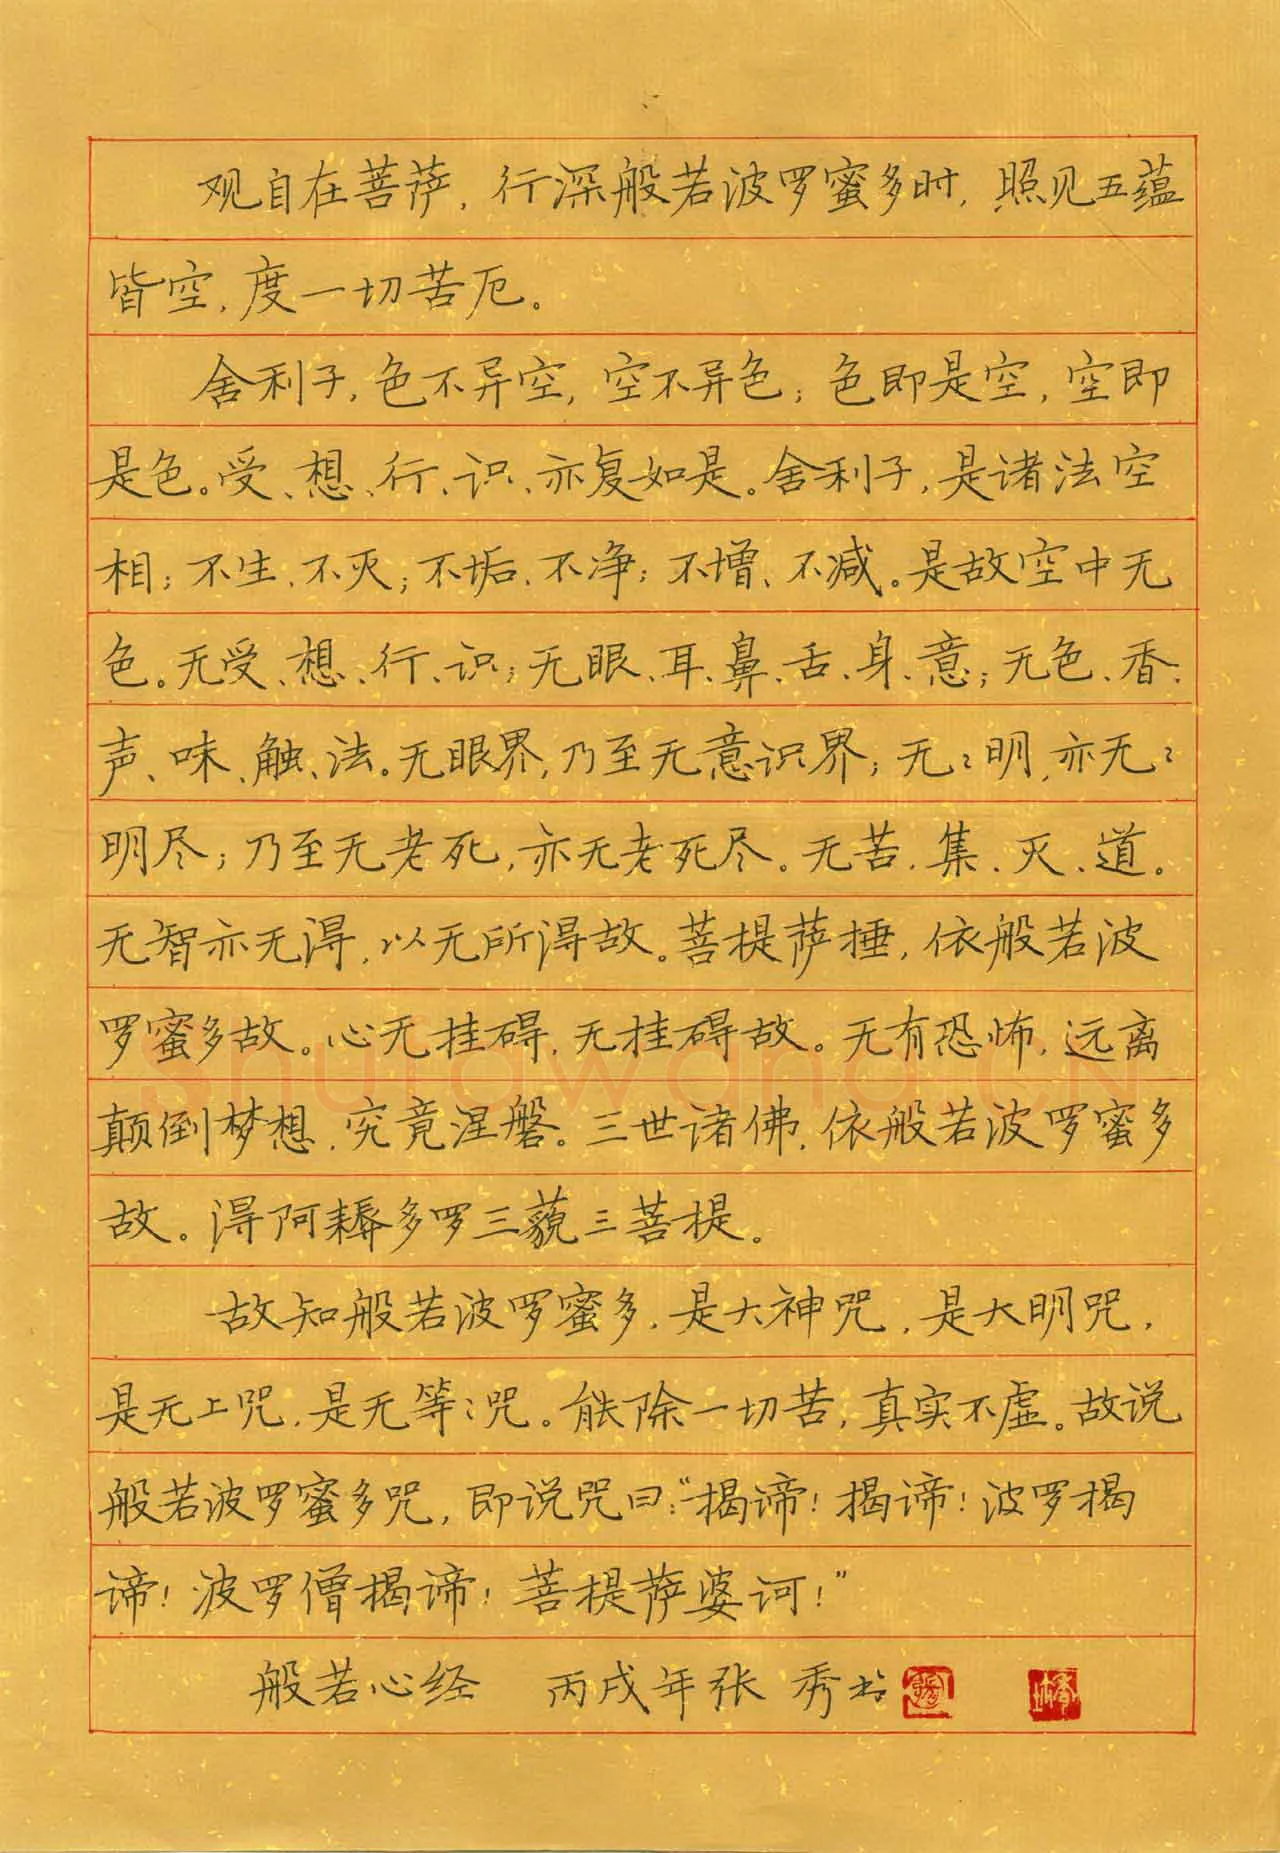 观自在菩萨，行深般若波罗蜜多时，照见五蕴
皆空，度一切苦厄。
舍利子，色不异空，空不异色；色即是空，空即
是色。受、想、行、识、亦复如是。舍利子，是诸法空
相；不生、不灭；不垢、不净；不增、不减。是故空中无
色。无受、想、行、识；无眼、耳、鼻、舌、身、意；无色、香、
声、味、触、法。无眼界，乃至无意识界；无〻明，亦无〻
明尽；乃至无老死，亦无老死尽。无苦、集、灭、道。
无智亦无得，以无所得故。菩提萨捶，依般若波
罗蜜多故。心无挂碍，无挂碍故。无有恐怖，远离
颠倒梦想，究竟涅磐。三世诸佛，依般若波罗蜜多
故。得阿耨多罗三藐三菩提。
故知般若波罗蜜多，是大神咒，是大明咒，
是无上咒，是无等〻咒。能除一切苦，真实不虚。故说
般若波罗蜜多咒，即说咒曰：“揭谛！揭谛！波罗揭
谛！波罗僧揭谛！菩提萨婆诃！”
般若心经 丙戌年张 秀书
Shufawang.CN